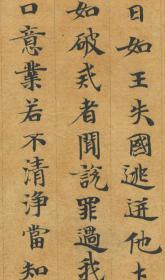 日如王失國逃迸他土
如破戒者聞說罪過我
口意業若不清浄當知